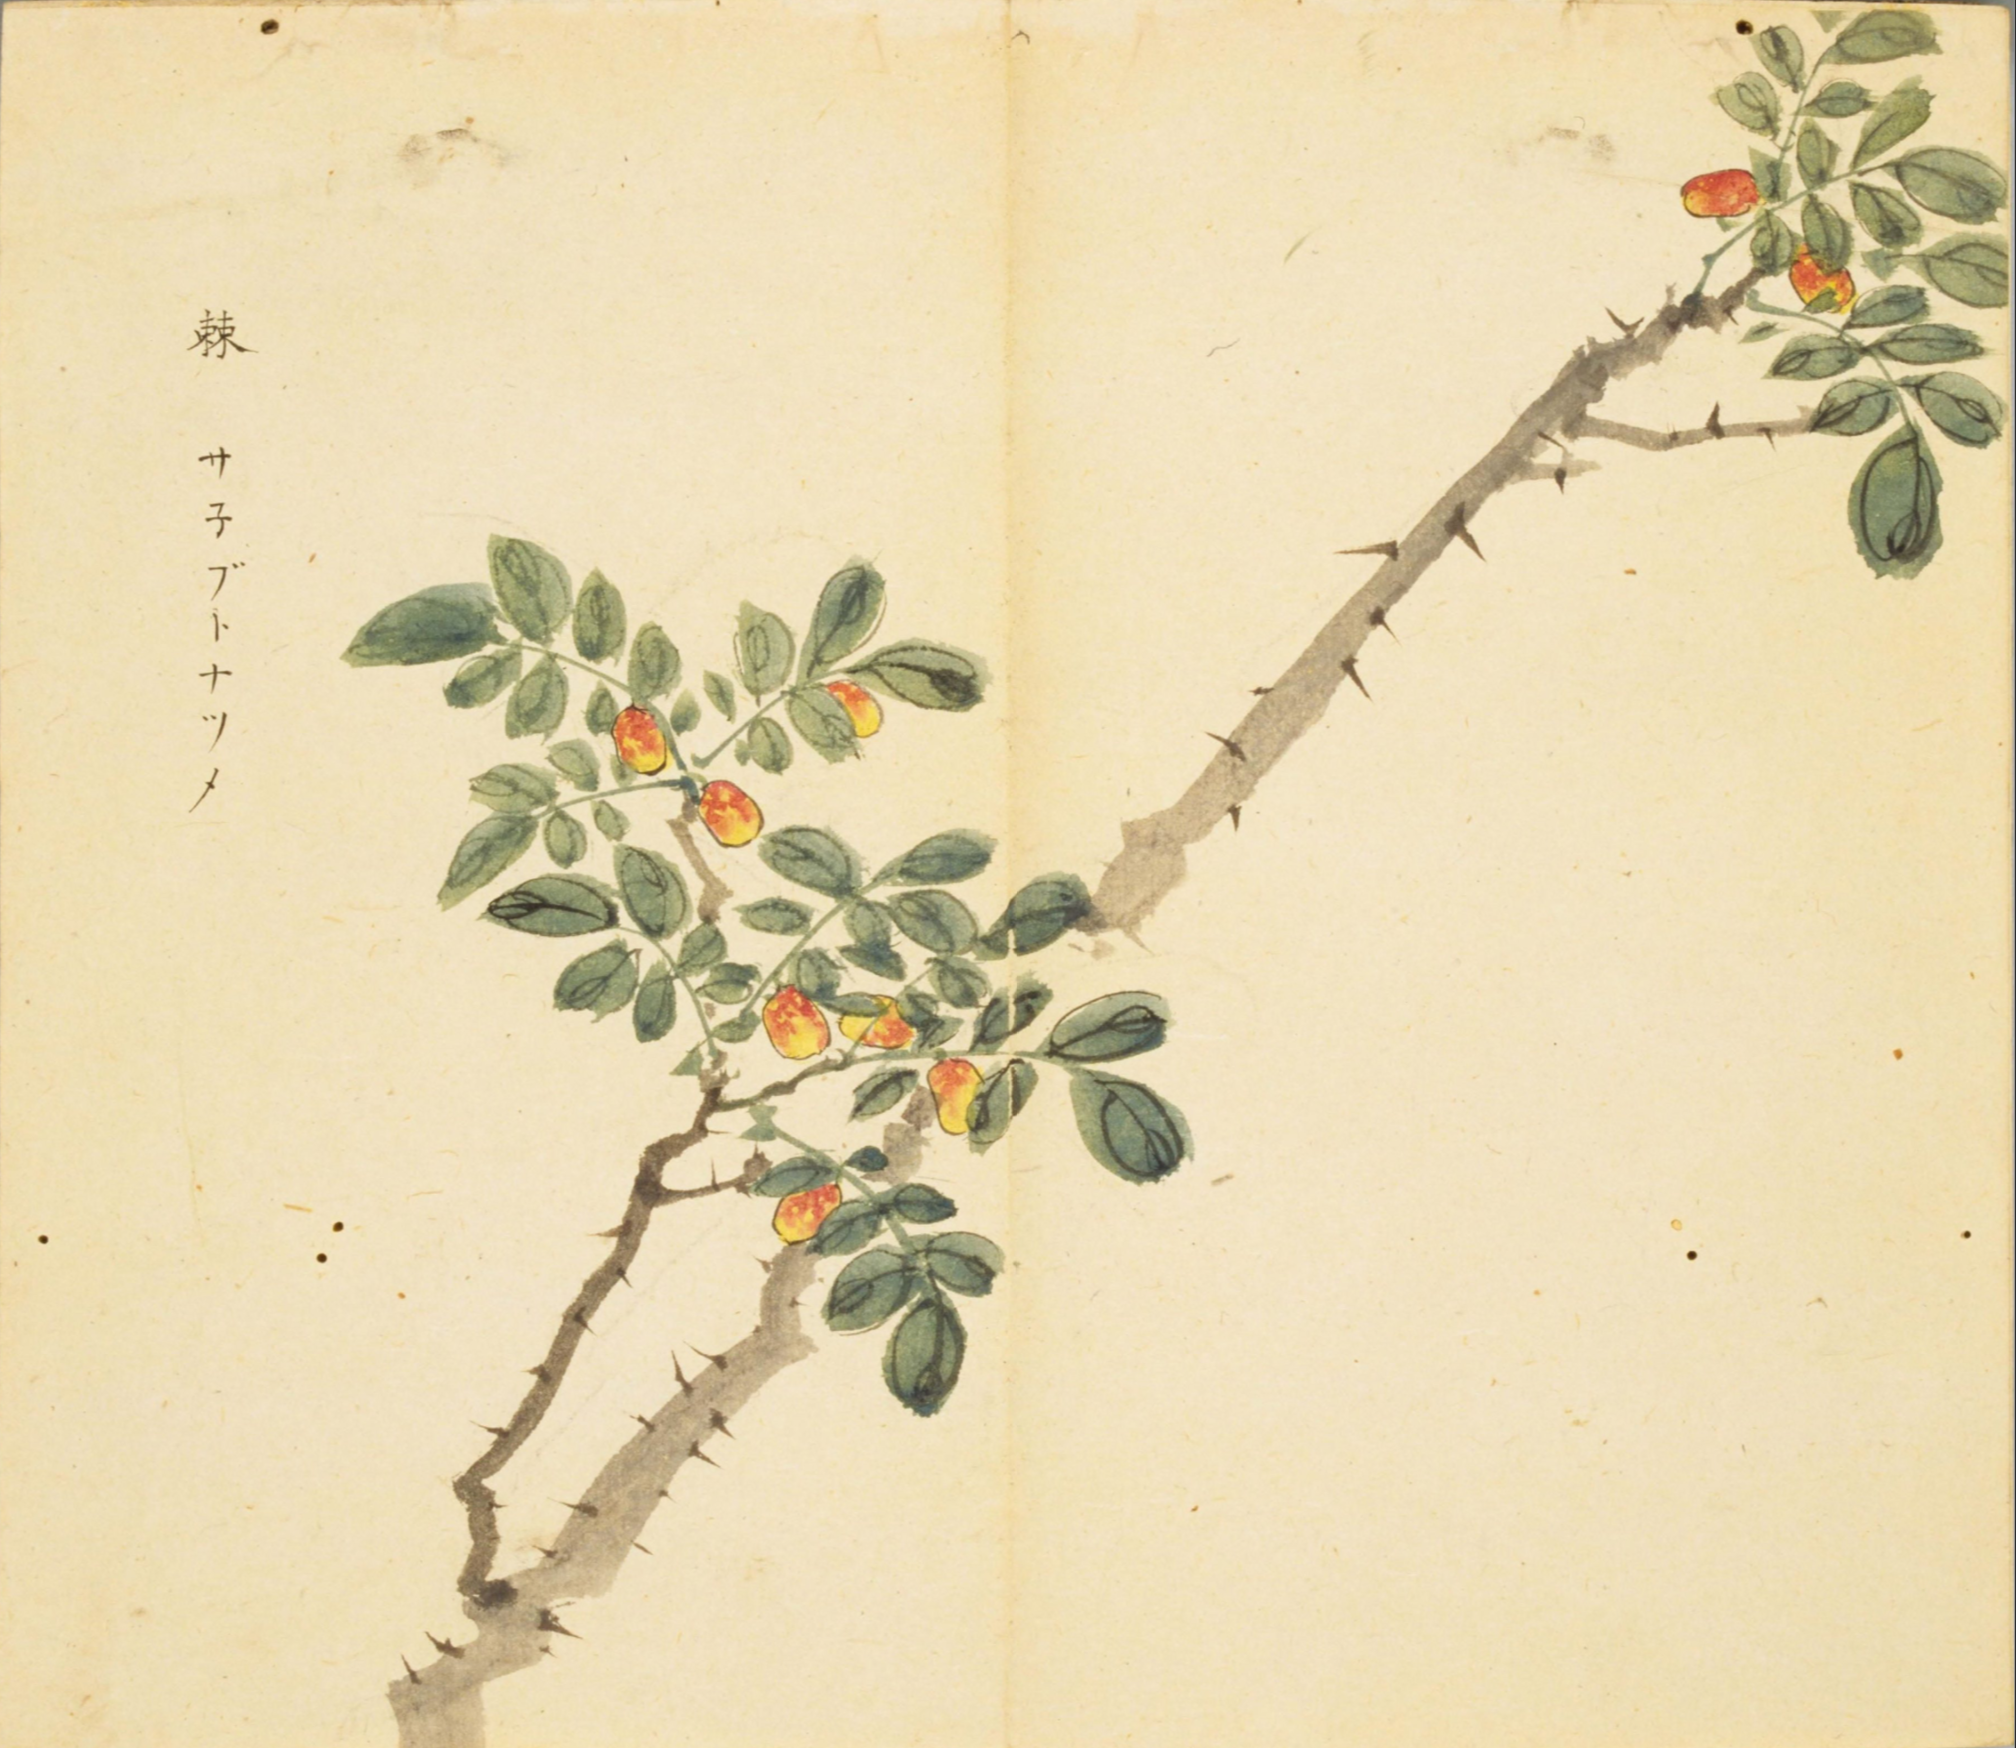 棘 サ子ブトナツメ